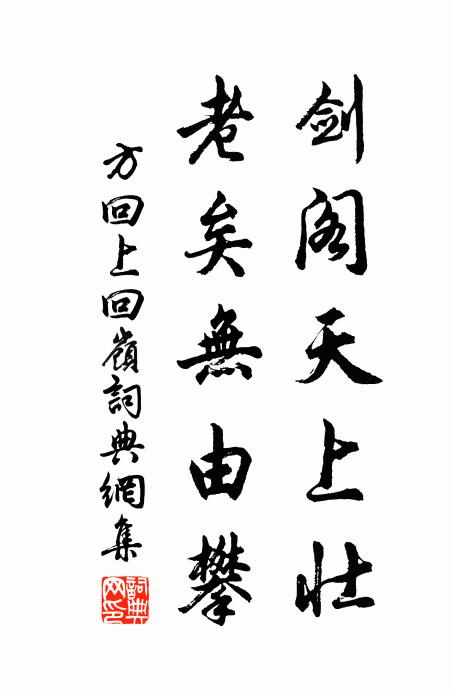 剑阁天上壮
老矣無由攀
方回上回嶺詞典網集
詞典網印